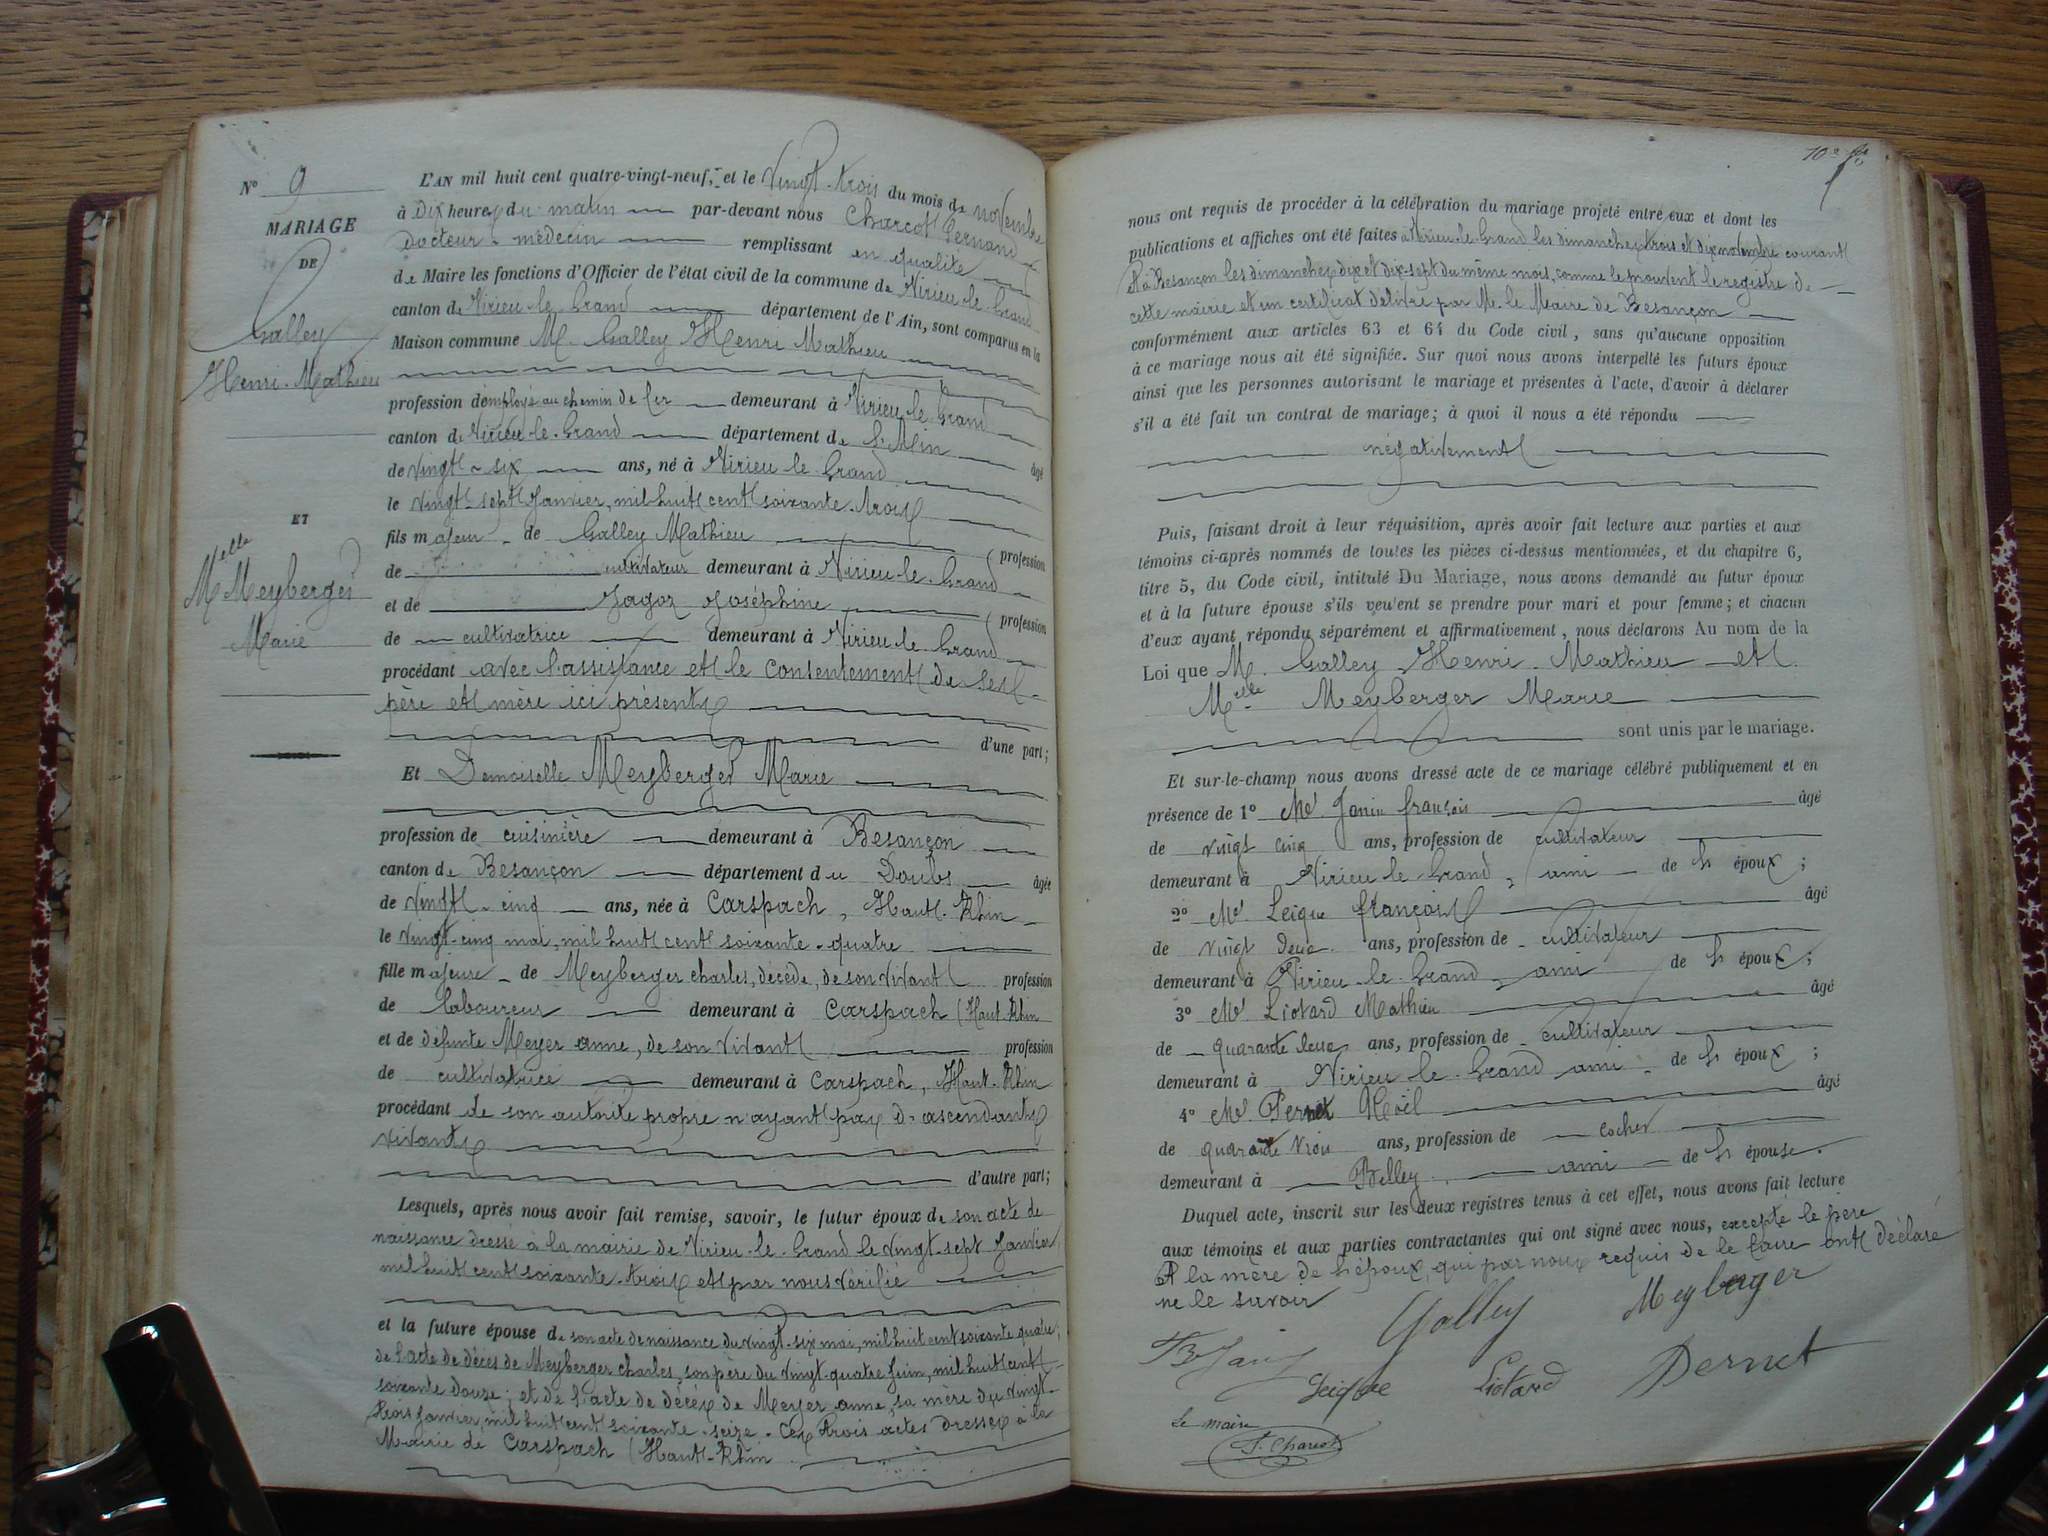 N° 9
MARIAGE
DE
Galley
Henri-Mathieu
ET
Melle Meyberger
Marie
L'AN mil huit cent quatre-vingt-neuf, et le Vingt-trois du mois de novembre
à dix heures du matin par-devant nous Charcot Fernand
docteur-médecin remplissant en qualité
de Maire les fonctions d'Officier de l'état civil de la commune de Virieu-le-Grand
canton de Virieu le Grand département de l'Ain, sont comparus en la
Maison commune M. Galley Henri Mathieu
profession d'employé au chemin de fer demeurant à Virieu-le-Grand
canton de Virieu-le-Grand département de l'Ain âgé
de vingt-six ans, né à Virieu le Grand
le vingt-sept Janvier, mil huit cent soixante-trois
fils majeur de Galley Mathieu profession
de cultivateur demeurant à Virieu-le-Grand
et de Jagoz Joséphine profession
de cultivatrice demeurant à Virieu-le-Grand
procédant avec l'assistance et le consentement de ses
père et mère ici présents
d'une part;
Et Demoiselle Meyberger Marie
profession de cuisinière demeurant à Besançon
canton de Besançon département du Doubs âgée
de Vingt-cinq ans, née à Carspach, Haut-Rhin
le vingt-cinq mai, mil huit cent soixante-quatre
fille majeure de Meyberger charles, décédé, de son vivant profession
de laboureur demeurant à Carspach (Haut-Rhin
et de défunte Meyer anne, de son vivant profession
de cultivatrice demeurant à Carspach, Haut-Rhin
procédant de son autorité propre n'ayant pas d'ascendants
vivants
d'autre part;
Lesquels, après nous avoir fait remise, savoir, le futur époux de son acte de
naissance dressé à la mairie de Virieu-le-Grand le vingt-sept Janvier
mil huit cent soixante-trois et par nous vérifié
et la future épouse de son acte de naissance du vingt-six mai, mil huit cent soixante quatre;
de l'acte de décès de Meyberger charles, son père du vingt-quatre Juin, mil huit cent
soixante douze; et de l'acte de décès de Meyer anne, sa mère du vingt-
trois Janvier, mil huit cent soixante-seize. Ces trois actes dressés à la
Mairie de Carspach (Haut-Rhin
10e
nous ont requis de procéder à la célébration du mariage projeté entre eux et dont les
publications et affiches ont été faites à Virieu-le-Grand les dimanches trois et dix novembre courant
et à Besançon les dimanches dix et dix-sept du même mois, comme le prouvent le registre de
cette mairie et un certificat délivré par M. le Maire de Besançon
conformément aux articles 63 et 64 du Code civil, sans qu'aucune opposition
à ce mariage nous ait été signifiée. Sur quoi nous avons interpellé les futurs époux
ainsi que les personnes autorisant le mariage et présentes à l'acte, d'avoir à déclarer
s'il a été fait un contrat de mariage; à quoi il nous a été répondu
négativement
Puis, faisant droit à leur réquisition, après avoir fait lecture aux parties et aux
témoins ci-après nommés de toutes les pièces ci-dessus mentionnées, et du chapitre 6,
titre 5, du Code civil, intitulé Du Mariage, nous avons demandé au futur époux
et à la future épouse s'ils veulent se prendre pour mari et pour femme; et chacun
d'eux ayant répondu séparément et affirmativement, nous déclarons Au nom de la
Loi que M. Galley Henri-Mathieu et
Melle Meyberger Marie
sont unis par le mariage.
Et sur-le-champ nous avons dressé acte de ce mariage célébré publiquement et en
présence de 1° Mr Janin françois âgé
de vingt cinq ans, profession de cultivateur
demeurant à Virieu le Grand, ami de l' époux;
2° Mr Leique françois âgé
de vingt deux ans, profession de cultivateur
demeurant à Virieu-le-Grand, ami de l' époux;
3° Mr Liotard Mathieu âgé
de quarante deux ans, profession de cultivateur
demeurant à Virieu le Grand ami de l' époux;
4° Mr Pernet Noël âgé
de quarante trois ans, profession de cocher
demeurant à Belley ami de l' épouse.
Duquel acte, inscrit sur les deux registres tenus à cet effet, nous avons fait lecture
aux témoins et aux parties contractantes qui ont signé avec nous, excepté le père
et la mère de l'époux, qui par nous requis de le faire ont déclaré
ne le savoir
Galley
Meyberger
Leique
Liotard
Pernet
Le maire
F. Charcot